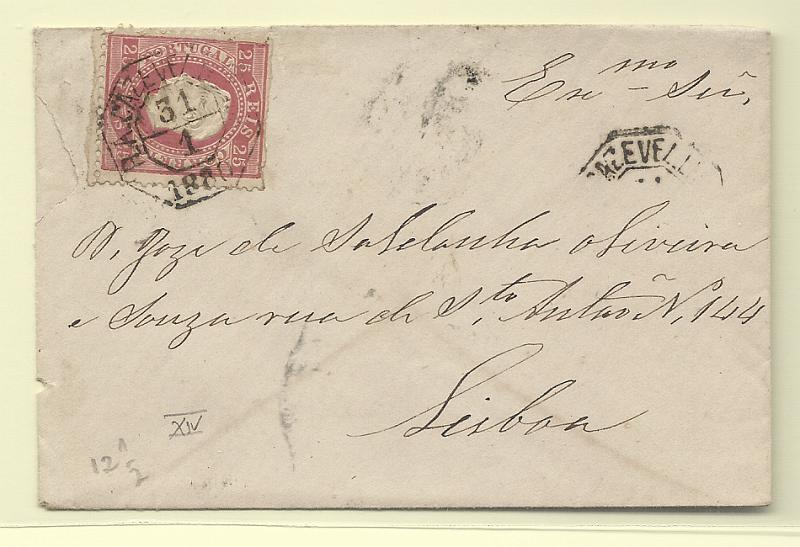 PORTUGAL
25 REIS 25
25
31
1
Exmo Snr.
D. Joze de Saldanha oliveira
e Souza rua de Sto. Antão No. 144
Lisboa
XIV
12 1/2